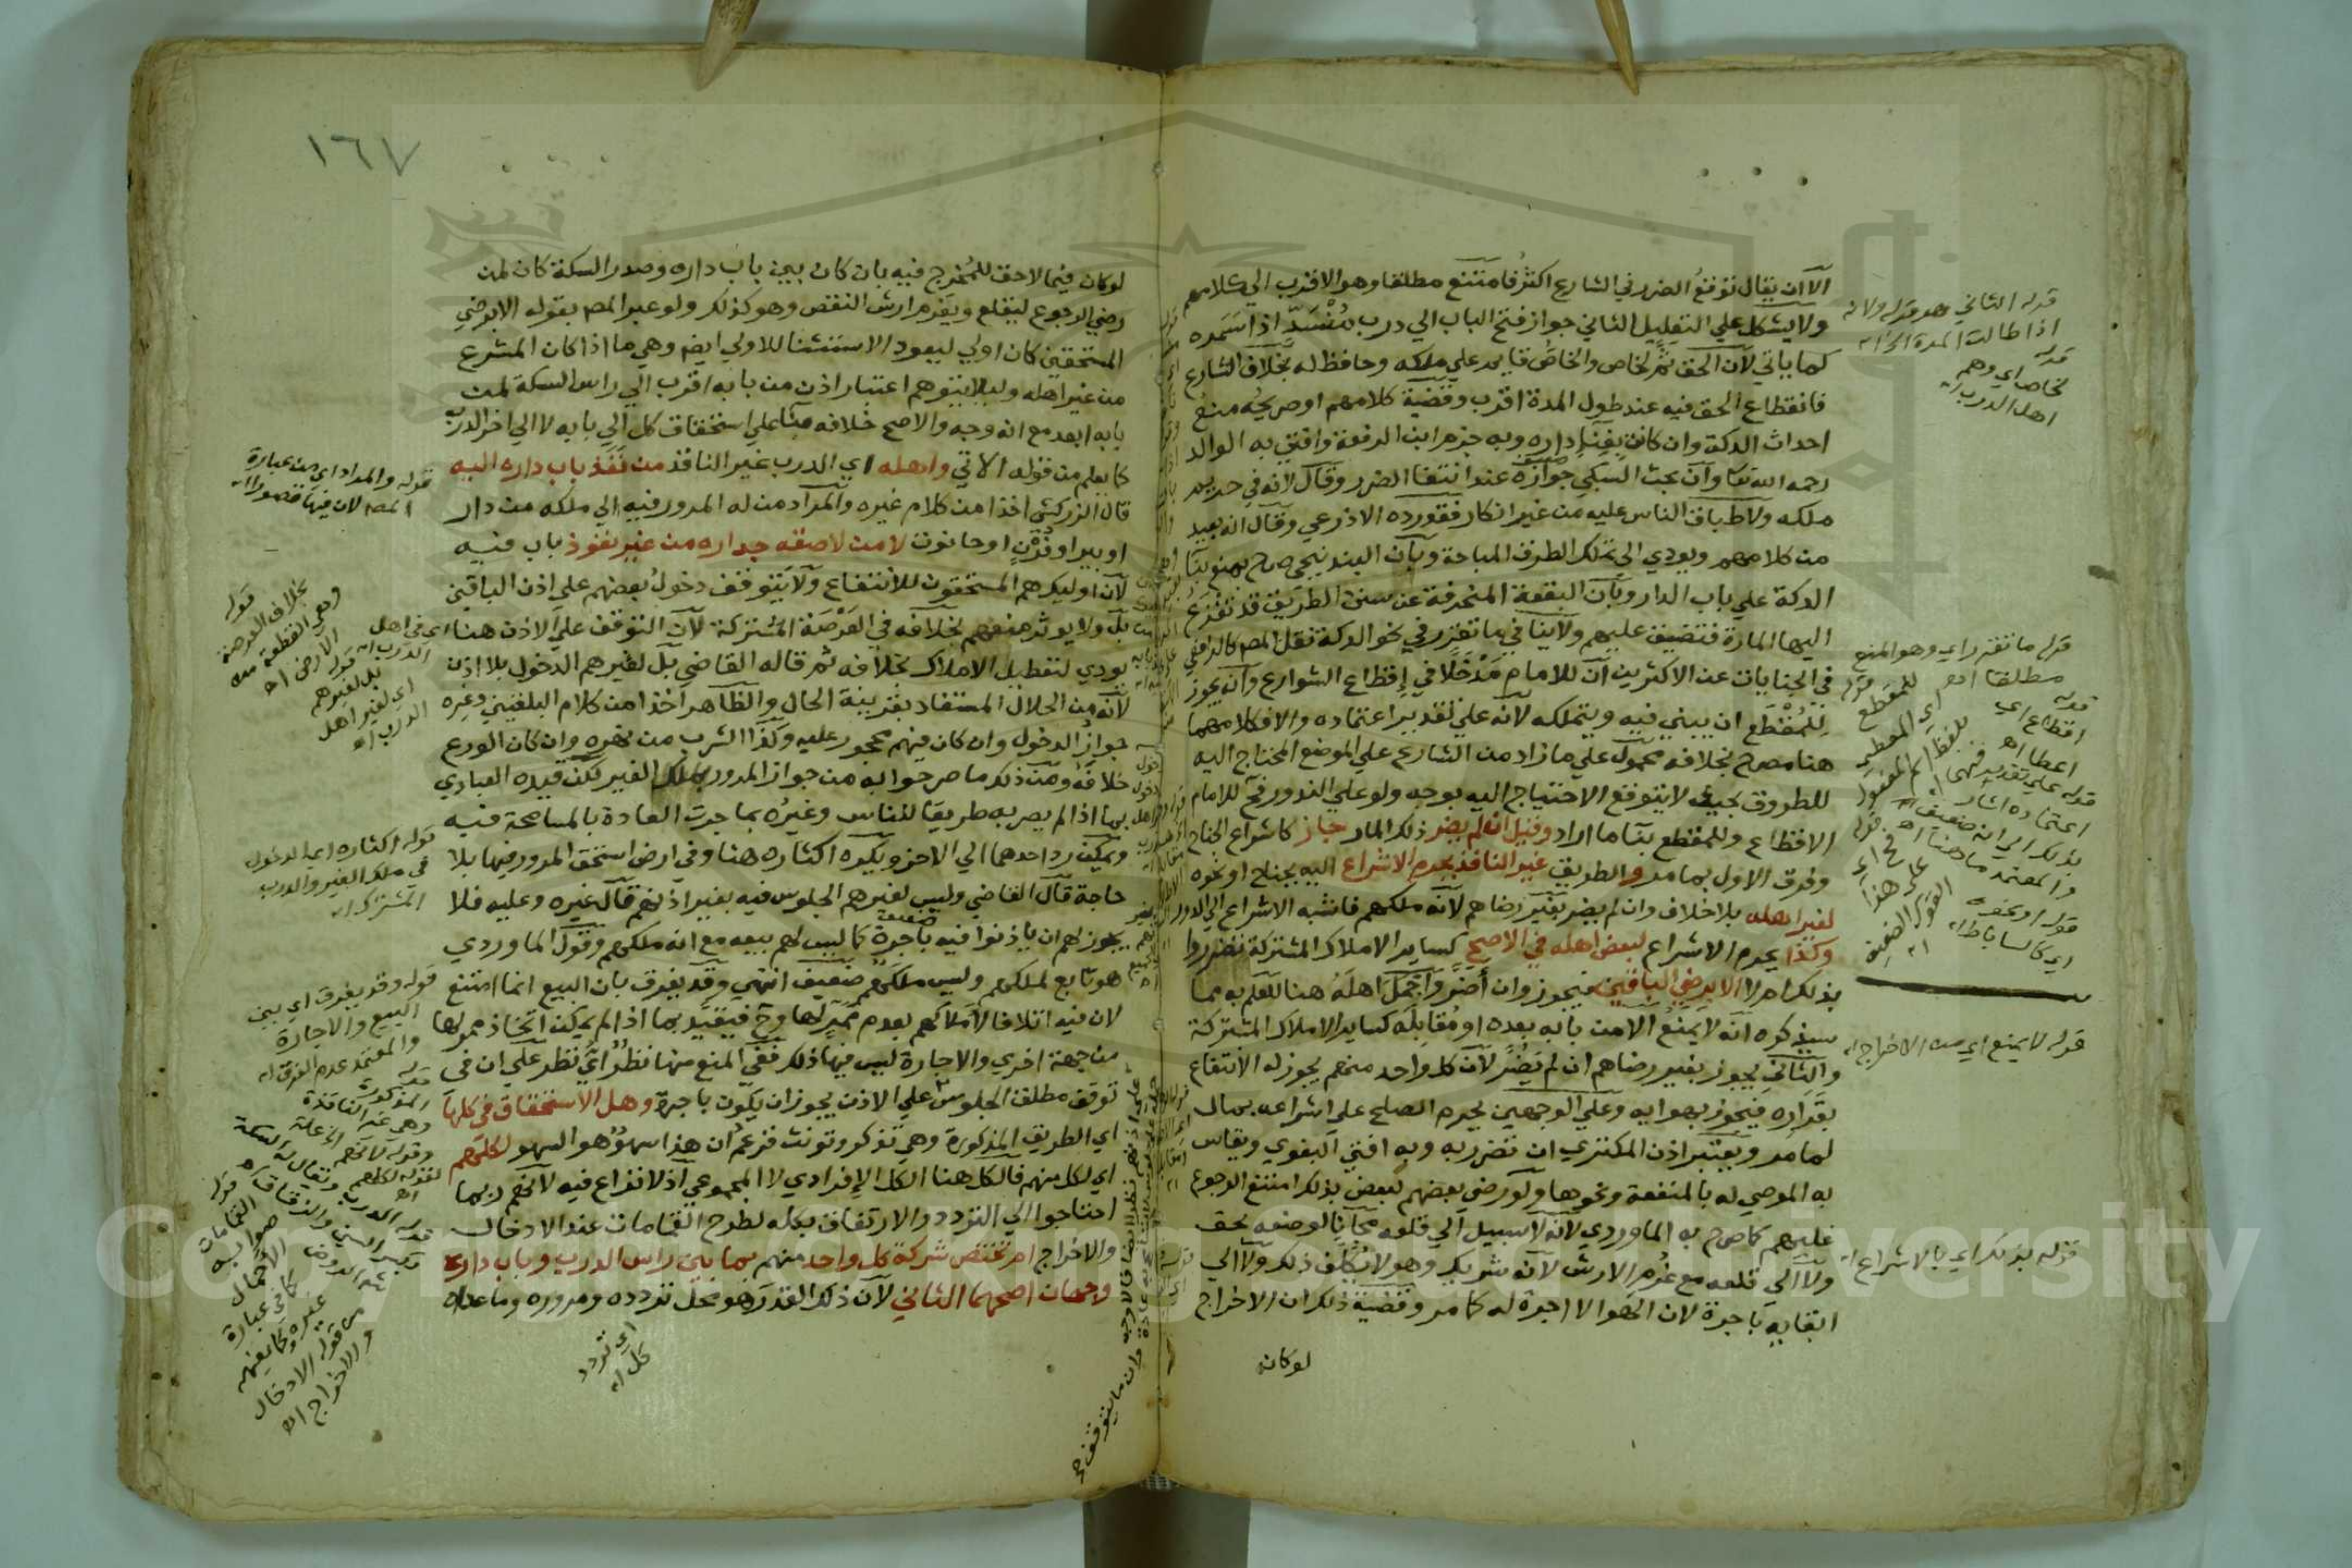 الا ان يقال توقع الضرر في الشارع اكثر فامتنع مطلقا وهو الاقرب الي كلامهم
ولا يشكل علي التعليل الثاني جواز فتح الباب الي درب منسد اذا سمره
كما ياتي لان الحق ثم لخاص والخاص قايم علي ملكه وحافظ له بخلاف الشارع
فانقطاع الحق فيه عند طول المدة اقرب وقضية كلامهم او صريحه منع
احداث الدكة وان كانت بفناء داره وبه جزم ابن الرفعة وافتي به الوالد
رحمه الله تعا وان بحث السبكي جوازه عند انتفا الضرر وقال لانه في حريم
ملكه ولاطباق الناس عليه من غير انكار فقد رده الاذرعي وقال انه بعيد
من كلامهم ويودي الي تملك الطرق المباحة وبان البندنيجي صرح بمنع بنا
الدكة علي باب الدار وبان البقعة المنحرفة عن سنن الطريق قد تفزع
اليها المارة فتضيق عليهم ولا ينافي ما تقرر في نحو الدكة نقل المص كالرافعي
في الجنايات عن الاكثرين ان للامام مدخلا في اقطاع الشوارع وانه يجوز
للمقطع ان يبني فيه ويتملكه لانه علي تقدير اعتماده والا فكلامهما
هنا مصرح بخلافه محمول علي ما زاد من الشارع علي الموضع المحتاج اليه
للطروق بحيث لا يتوقع الاحتياج اليه بوجه ولو علي الندور فح للامام
الاقطاع وللمقطع بنا ما اراد وقيل ان لم يضر ذلك المار جاز كاشراع الجناح
وفرق الاول بما مر والطريق غير النافذ يحرم الاشراع اليه بجناح او نحوه
لغير اهله بلا خلاف وان لم يضر بغير رضاهم لانه ملكهم فاشبه الاشراع الي الدور
وكذا يحرم الاشراع لبعض اهله في الاصح كساير الاملاك المشتركة تضرروا
بذلك ام لا الا برضي الباقين فيجوز وان أضر واجمل اهله هنا للعلم به مما
سيذكره انه لا يمنع الا من بابه بعده او مقابله كساير الاملاك المشتركة
والثاني يجوز بغير رضاهم ان لم يضر لان كل واحد منهم يجوز له الانتفاع
بقراره فيجوز بهوايه وعلي الوجهين يحرم الصلح علي اشراعه بمال
لما مر ويعتبر اذن المكتري ان تضرر به وبه افتي البغوي ويقاس
به الموصي له بالمنفعة ونحوها ولو رضي بعضهم لبعض بذلك امتنع الرجوع
عليهم كما صرح به الماوردي لانه لا سبيل الي قلعه مجانا لوضعه بحق
ولا الي قلعه مع غرم الارش لانه شريك وهو لا يكلف ذلك ولا الي
ابقايه باجرة لان الهوا لا اجرة له كما مر وقضية ذلك ان الاخراج
لو كان
قوله الثاني وهو قوله ولانه
اذا طالت المدة الخ اه
قوله
لخاص اي وهم
اهل الدرب اه
قوله ما تقرر اي وهو المنع
مطلقا اه
قوله
اقطاع اي
اعطا اه
قوله للمقطع
اي المعطي
بلفظ اسم المفعول
قوله علي تقدير
اعتماده اشار
بذلك الي انه ضعيف
والمعتمد ما هنا اه
قوله او نحوه
اي كالساباط اه
قوله لا يمنع اي من الاخراج اه
قوله بذلك اي بالاشراع اه
١٦٧
لو كان فيما لاحق للمخرج فيه بان كان بين باب داره وصدر السكة كان لمن
رضي الرجوع ليقلع ويغرم ارش النقص وهو كذلك ولو عبر المص بقوله الا برضي
المستحقين كان اولي ليعود الاستثنا للاولي ايضا وهي ما اذا كان المشرع
من غير اهله وليلا يتوهم اعتبار اذن من بابه اقرب الي راس السكة لمن
بابه ابعد مع انه وجه والاصح خلافه بنا علي استحقاق كل الي بابه لا الي اخر الدرب
كما يعلم من قوله الاتي واهله اي الدرب غير النافذ من نفذ باب داره اليه
قال الزركشي اخذا من كلام غيره والمراد من له المرور فيه الي ملكه من دار
او بير او فرن او حانوت لا من لاصقه جداره من غير نفوذ باب فيه
لان اوليك هم المستحقون للانتفاع ولا يتوقف دخول بعضهم علي اذن الباقين
بل ولا يوثر منعهم بخلافه في العرصة المشتركة لان التوقف علي الاذن هنا
يودي لتعطيل الاملاك بخلافه ثم قاله القاضي بل لغيرهم الدخول بلا اذن
لانه من الحلال المستفاد بقرينة الحال والظاهر اخذا من كلام البلقيني وغيره
جواز الدخول وان كان فيهم محجور عليه وكذا الشرب من نهره وان كان الورع
خلافه ومن ذلك ما صرحوا به من جواز المرور بملك الغير لكن قيده العبادي
بما اذا لم يصر به طريقا للناس وغيره بما جرت العادة بالمسامحة فيه
ويمكن رد احدهما الي الاخر ويكره اكثاره هنا وفي ارض استحق المرور فيها بلا
حاجة قال القاضي وليس لغيرهم الجلوس فيه بغير اذنهم قال غيره وعليه فلا
يجوز لهم ان ياذنوا فيه باجرة كما ليس لهم بيعه مع انه ملكهم وقول الماوردي
هو تابع لملكهم وليس ملكهم ضعيف انتهي وقد يفرق بان البيع انما امتنع
لان فيه اتلافا لاملاكهم بعدم ممر لها وح فيقيد بما اذا لم يمكن اتخاذ ممر لها
من جهة اخري والاجارة ليس فيها ذلك ففي المنع منها نظر اي نظر علي ان في
توقف مطلق الجلوس علي الاذن يجوز ان يكون باجرة وهل الاستحقاق في كلها
اي الطريق المذكورة وهي تذكر وتونث فزعم ان هذا سهو هو السهو لكلهم
اي لكل منهم فالكل هنا الكل الافرادي لا المجموعي اذ لا نزاع فيه لانهم ربما
احتاجوا الي التردد والارتفاق بكله لطرح القمامات عند الادخال
والاخراج ام تختص شركة كل واحد منهم بما بين راس الدرب وباب داره
وجهان اصحهما الثاني لان ذلك القدر هو محل تردده ومروره وما عداه
قوله والمراد اي من عبارة
المص لان فيها قصورا اه
قوله
بخلاف العرصة
وهي القطعة من
الارض اه
اي في اهل
الدرب اه
قوله
بل لغيرهم
اي لغير اهل
الدرب اه
قوله اكثاره اي الدخول
في ملك الغير والدرب
المشترك اه
قوله وقد يفرق اي بين
البيع والاجارة
والمعتمد عدم الفرق اه
قوله
المذكورة
وهي غير النافذة
وقوله لانهم الخ علة
لقوله لكلهم
اه
قوله
القمامات
صوابه
الاحمال
كما في عبارة
غيره وكما يفهم
من قوله الادخال
والاخراج اه
اي تردد
كل اه